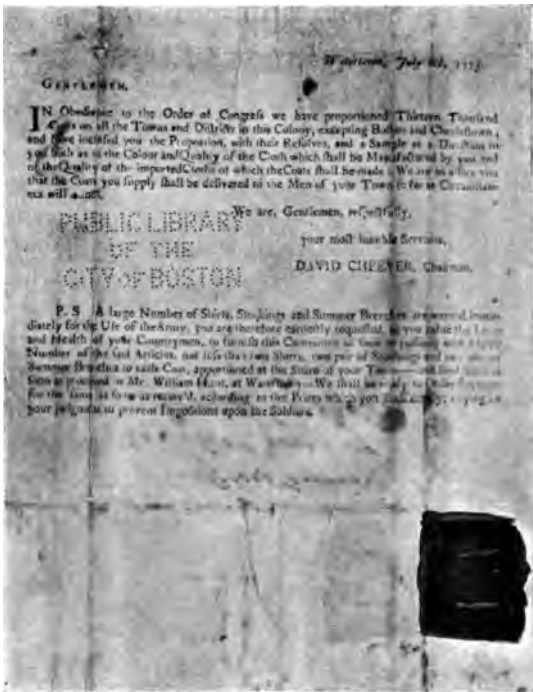 Watertown, July 1775
GENTLEMEN,
IN Obedience to the Order of Congreſs we have proportioned Thirteen Thouſand
Coats on all the Towns and Diſtricts in this Colony, excepting Boſton and Charleſtown,
and have incloſed you the Proportion, with their Reſolves, and a Sample as a Direction to
you both as to the Colour and Quality of the Cloth which ſhall be Manufactured by you and
of the Quality of the imported Cloths of which the Coats ſhall be made. We are
that the Coats you ſupply ſhall be delivered to the Men of your Town ſo far as Circumſtan-
ces will admit.
We are, Gentlemen, reſpectfully,
your moſt humble Servants,
DAVID CHEEVER, Chairman.
PUBLIC LIBRARY
OF THE
CITY OF BOSTON
P. S. A large Number of Shirts, Stockings and Summer Breeches are wanted imme-
diately for the Uſe of the Army, you are therefore earneſtly requeſted, as you value the
and Health of your Countrymen, to furniſh this Committee as ſoon as poſſible with
Number of the ſaid Articles, not leſs than two Shirts, two pair of Stockings and
Summer Breeches to each Coat, apportioned as the Share of your Town
ſoon as procured to Mr. William Hunt, at Watertown. We ſhall be ready to
for the ſame as ſoon as receiv'd, according to the Prices which you
your Judgment to prevent Impoſitions upon the Soldiers.